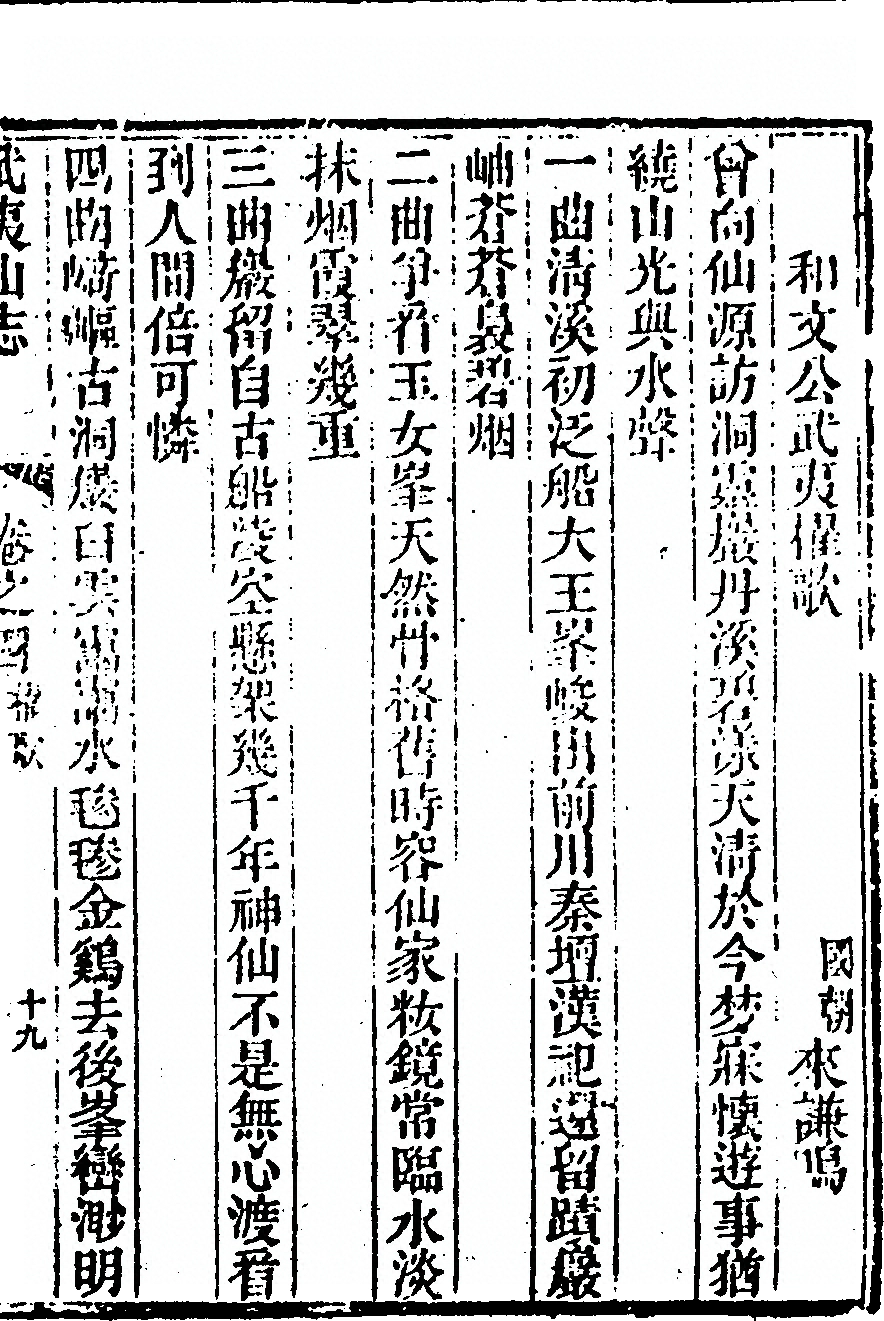 和文公武夷櫂歌
國朝 來謙鳴
曾向仙源訪洞靈巖丹溪碧漾天清於今梦寐懷遊事猶
繞山光與水聲
一曲清溪初泛船大王峯峻出前川秦壇漢祀還留蹟巖
岫苍苍裊碧烟
二曲爭看玉女峯天然骨格舊時容仙家妝鏡常臨水淡
抹烟霞翠幾重
三曲巖留自古船凌空懸架幾千年神仙不是無心渡看
到人間倍可憐
四曲崎嶇古洞巖白雲滴水毿毿金鷄去後峯巒渺明
武夷山志 卷之四 櫂歌 十九